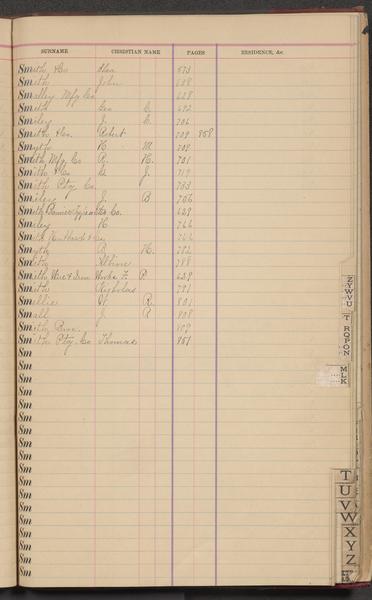 SURNAME CHRISTIAN NAME PAGES RESIDENCE, &c.
Smith & Co Chas 573
Smith John 608
Smalley Mfg Co 628
Smith Geo C. 692
Smiley J. C. 706
Smith & Co. Robert 709 858
Smyth N M 709
Smith Mfg Co R. H. 701
Smith & Co G J. 719
Smith Pty Co. 733
Smiley J. B. 756
Smith Premier Typewriter Co. 629
Smaley H 766
Smith 766
Smyth B H. 782
Smith 788
Smith Wire & Iron Works F. P. 629
Smith Nicholas 791
Smellie W R. 801
Small J R 808
Smith Bros. 809
Smith Pty. Co Thomas 851
Sm
Sm
Sm
Sm
Sm
Sm
Sm
Sm
Sm
Sm
Sm
Sm
Sm
Sm
Sm
Sm
Sm
Sm
ZYWVU
T
RQPON
MLK
T
U
V
W
X
Y
Z